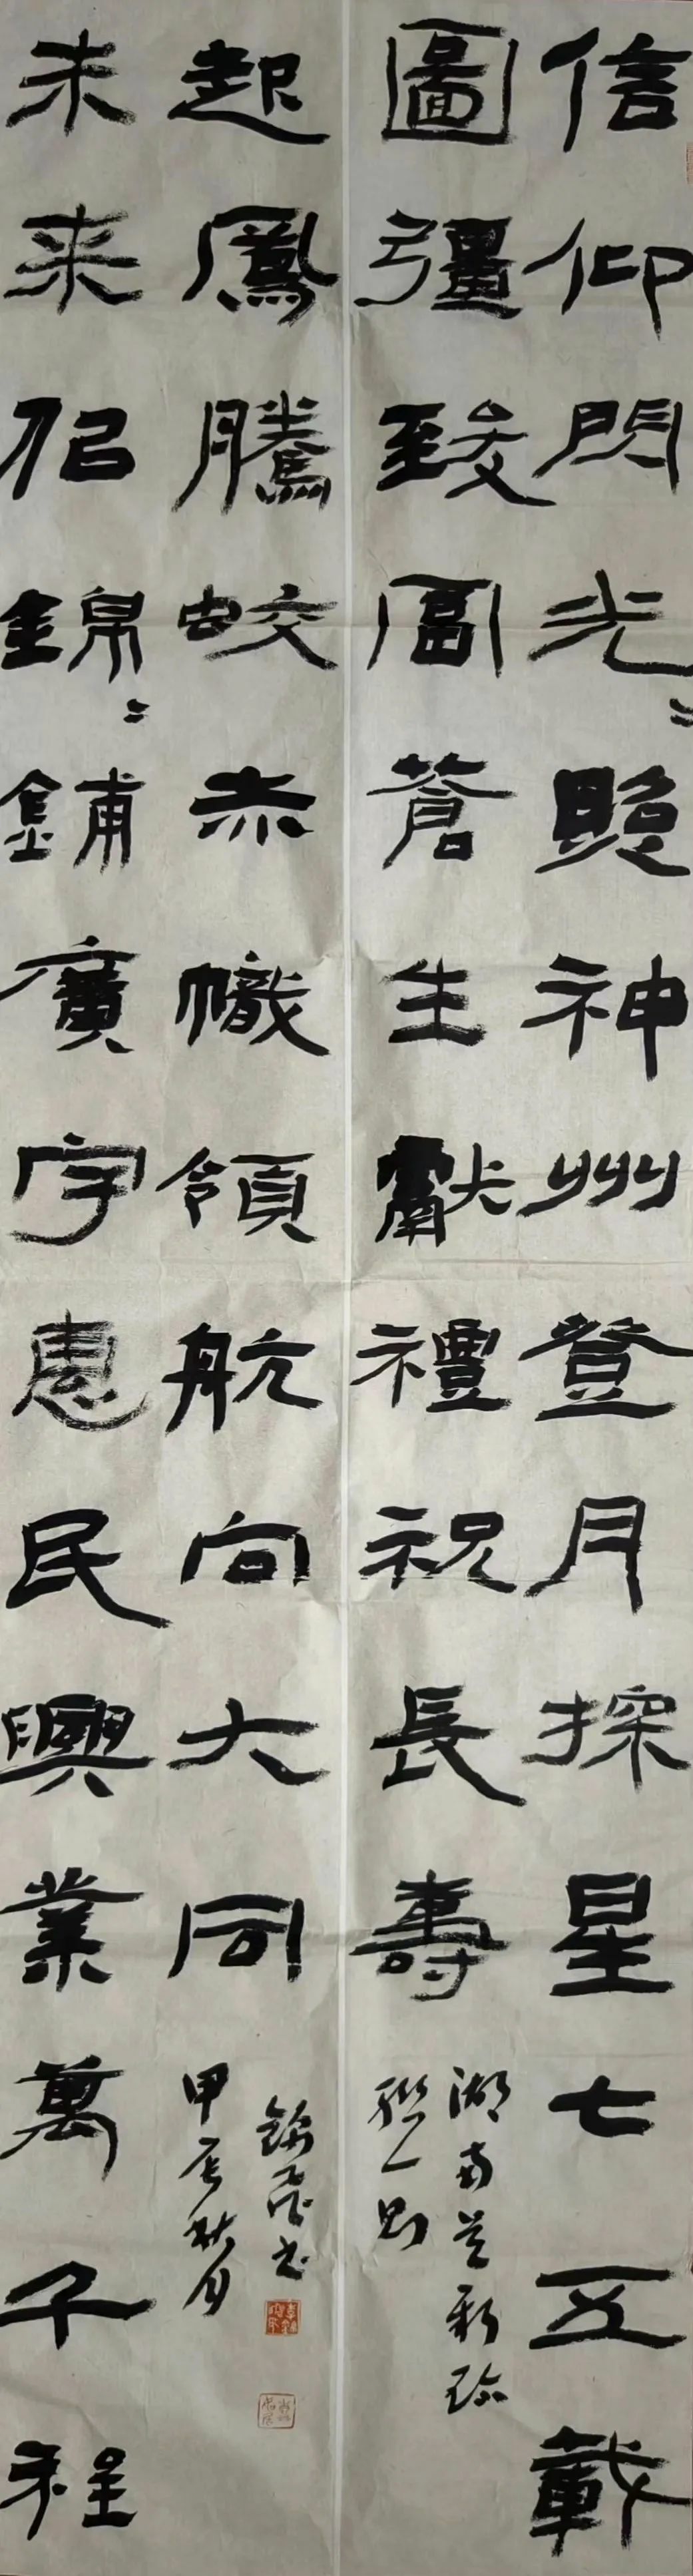 信仰閃光〻照神州登月探星七五載
圖彊致富蒼生獻禮祝長壽
湖南
聯一則
未来似錦〻鋪廣宇惠民興業萬千程
起鳳騰蛟赤幟領航向大同
甲辰秋月
書